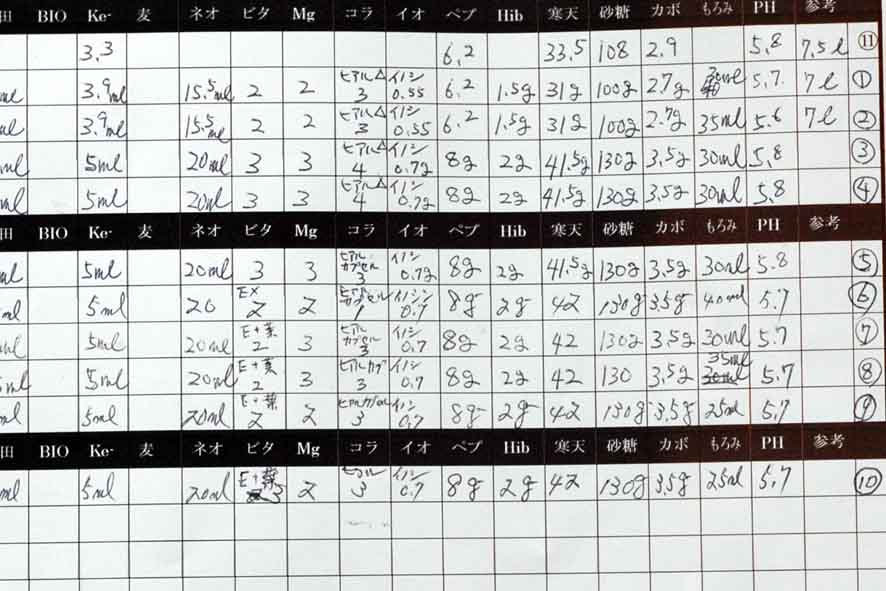 田 BIO Ke- 麦 ネオ ビタ Mg コラ イオ ペプ Hib 寒天 砂糖 カボ もろみ PH 参考
3.3 6.2 33.5 108 2.9 5.8 7.5ℓ ⑪
ml 3.9ml 15.5ml 2 2 ヒアル△ 3 イノシ 0.55 6.2 1.5g 31g 100g 2.7g 5.7 7ℓ ①
ml 3.9ml 15.5ml 2 2 ヒアル△ 3 イノシ 0.55 6.2 1.5g 31g 100g 2.7g 35ml 5.6 7ℓ ②
ml 5ml 20ml 3 3 ヒアル△ 4 イノシ 0.7g 8g 2g 41.5g 130g 3.5g 30ml 5.8 ③
ml 5ml 20ml 3 3 ヒアル△ 4 イノシ 0.7g 8g 2g 41.5g 130g 3.5g 30ml 5.8 ④
田 BIO Ke- 麦 ネオ ビタ Mg コラ イオ ペプ Hib 寒天 砂糖 カボ もろみ PH 参考
ml 5ml 20ml 3 3 ヒアルカプセル 3 イノシ 0.7g 8g 2g 41.5g 130g 3.5g 30ml 5.8 ⑤
ml 5ml 20 EX 2 2 ヒアルカプセル 1 イノシン 0.7 8g 2g 42 130g 3.5g 40ml 5.7 ⑥
ml 5ml 20ml E+葉 2 3 ヒアルカプセル 3 イノシ 0.7 8g 2g 42 130g 3.5g 30ml 5.7 ⑦
5ml 5ml 20ml E+葉 2 3 ヒアルカプ 3 イノシ 0.7 8g 2g 42 130 3.5g 35ml 30ml 5.7 ⑧
ml 5ml 20ml E+葉 2 2 ヒアルカプセル 3 イノシ 0.7 8g 2g 42 130g 3.5g 25ml 5.7 ⑨
田 BIO Ke- 麦 ネオ ビタ Mg コラ イオ ペプ Hib 寒天 砂糖 カボ もろみ PH 参考
ml 5ml 20ml E+葉 3 2 ヒアル 3 イノシ 0.7 8g 2g 42 130g 3.5g 25ml 5.7 ⑩